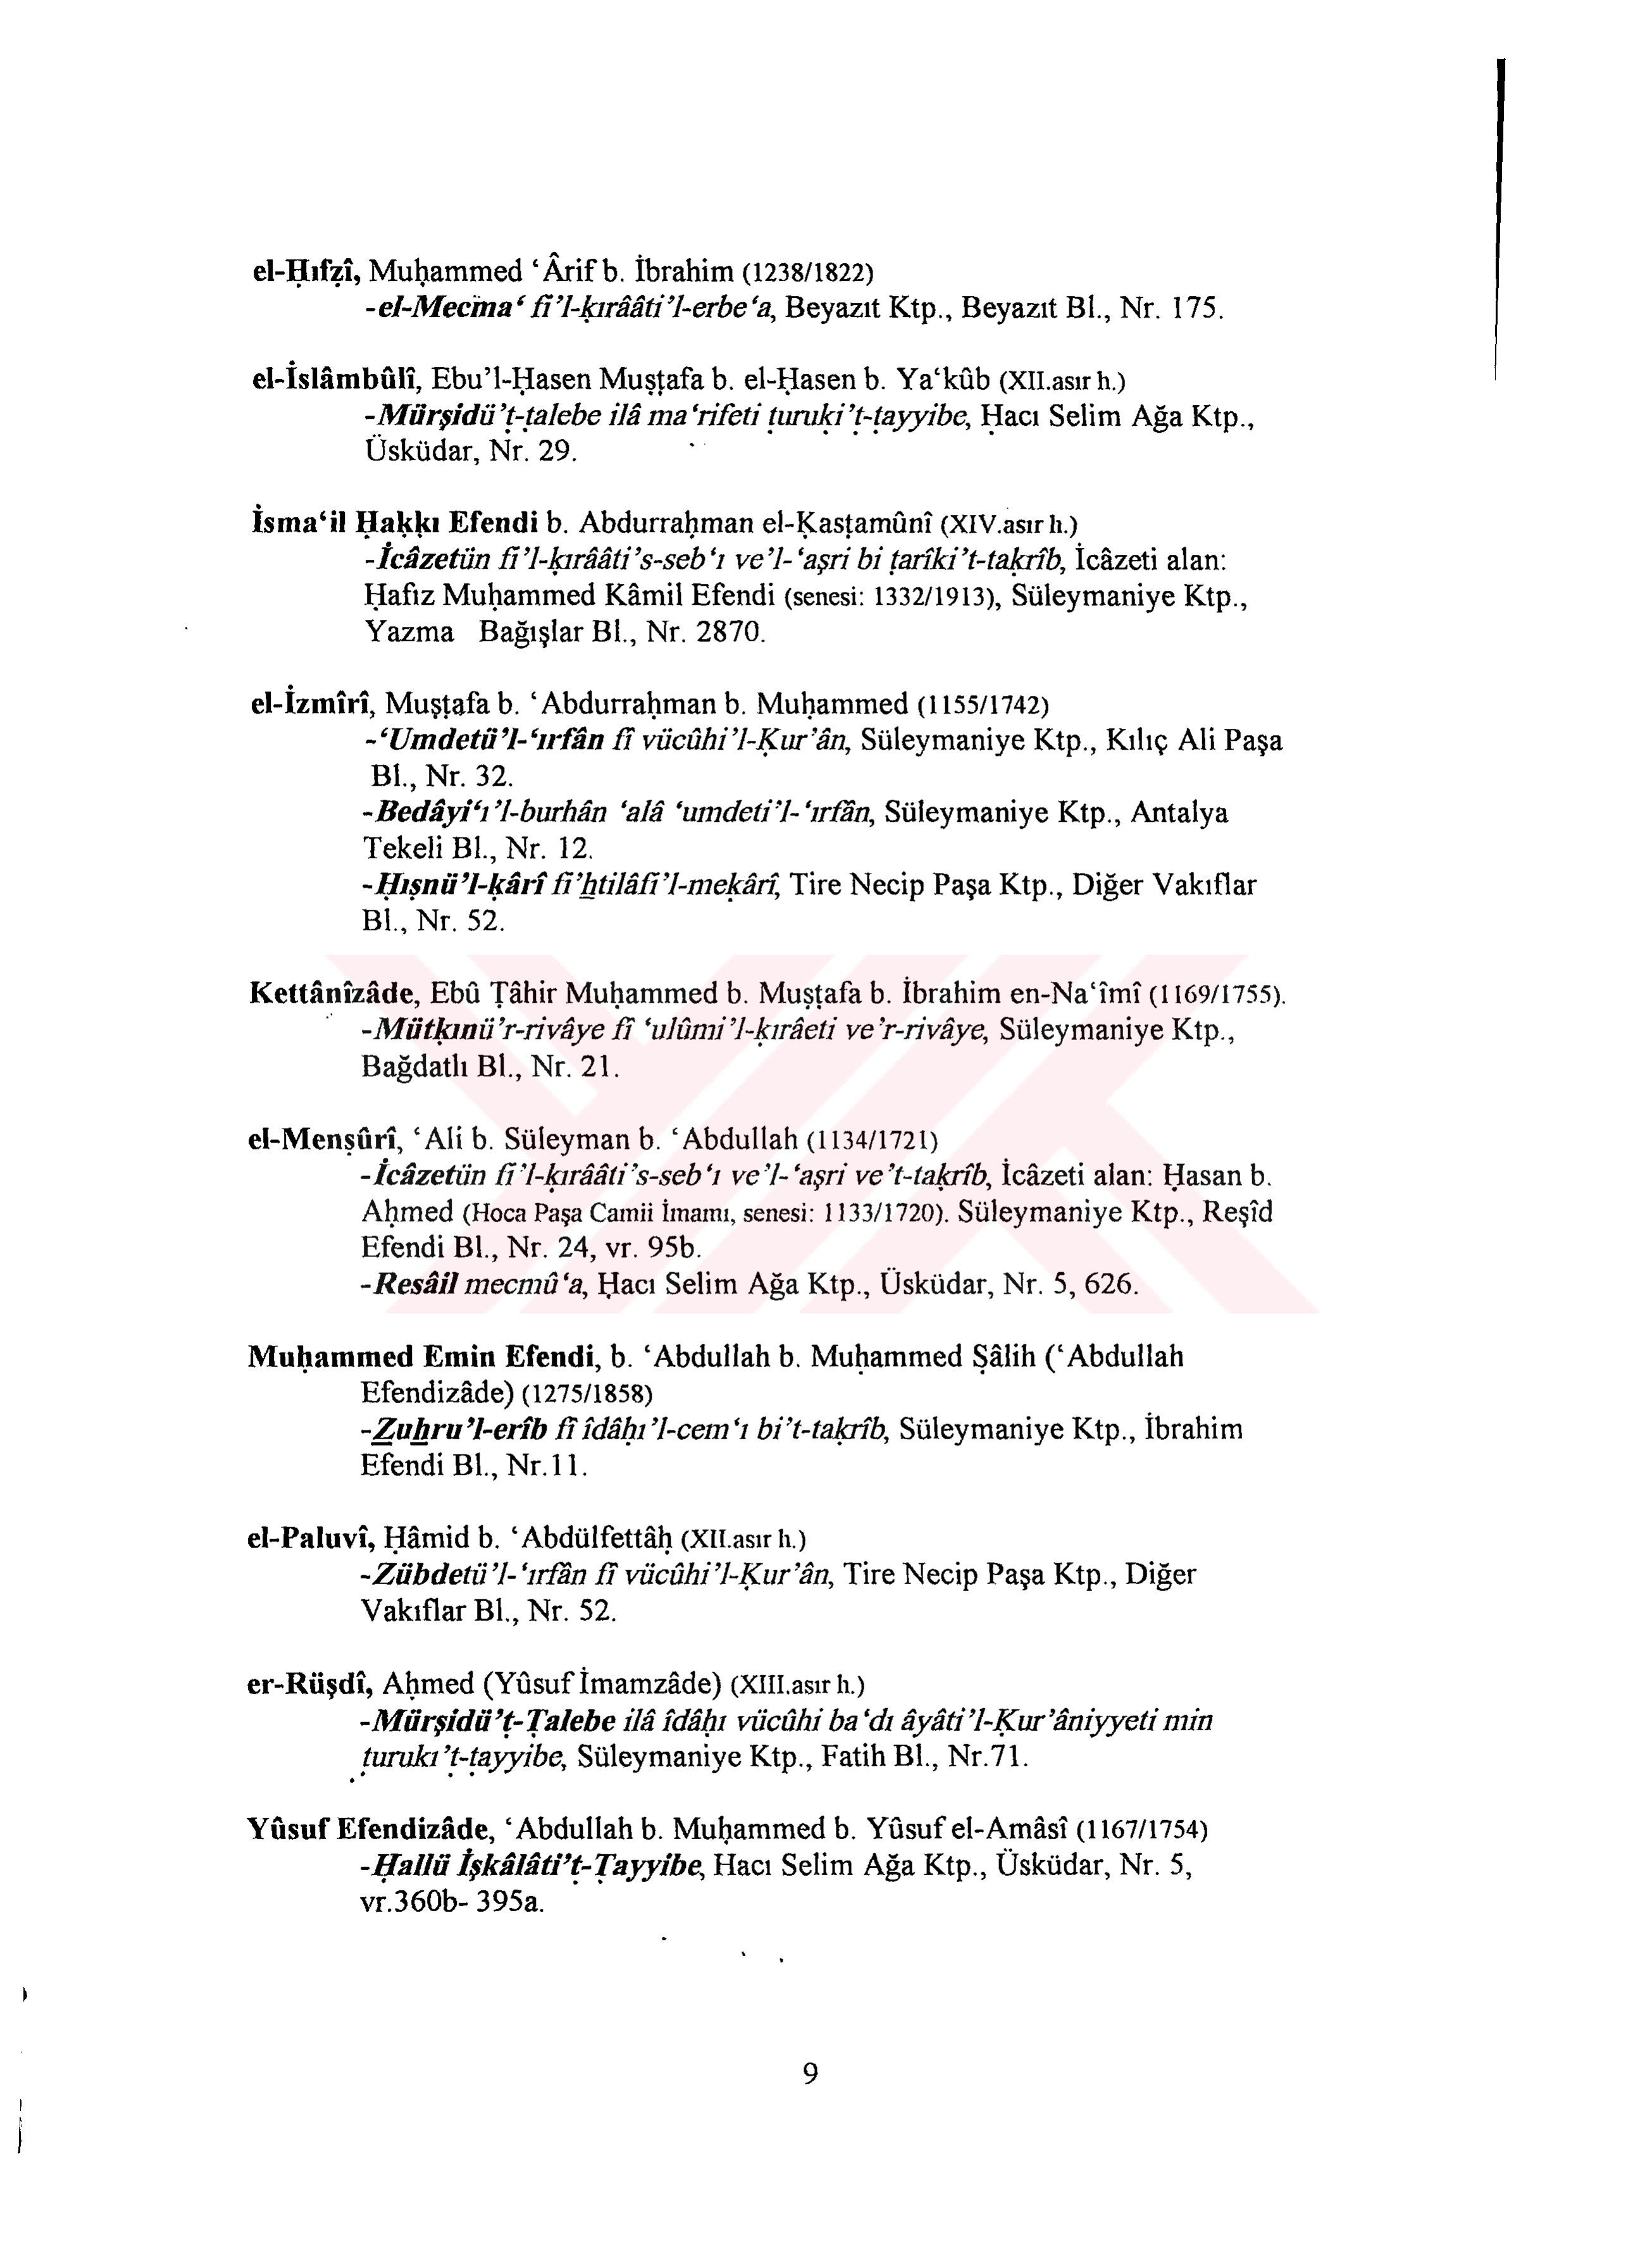 el-Ḥıfẓî, Muḥammed ‘Ârif b. İbrahim (1238/1822)
-el-Mecma‘ fi’l-ḳırââti’l-erbe‘a, Beyazıt Ktp., Beyazıt Bl., Nr. 175.
el-İslâmbûlî, Ebu’l-Ḥasen Muṣṭafa b. el-Ḥasen b. Ya‘kûb (XII.asır h.)
-Mürşidü’ṭ-ṭalebe ilâ ma‘rifeti ṭuruḳi’ṭ-ṭayyibe, Ḥacı Selim Ağa Ktp.,
Üsküdar, Nr. 29.
İsma‘il Ḥaḳḳı Efendi b. Abdurraḥman el-Ḳasṭamûnî (XIV.asır h.)
-İcâzetün fi’l-ḳırââti’s-seb‘ı ve’l-‘aşri bi ṭarîki’t-taḳrîb, İcâzeti alan:
Ḥafiz Muḥammed Kâmil Efendi (senesi: 1332/1913), Süleymaniye Ktp.,
Yazma Bağışlar Bl., Nr. 2870.
el-İzmîrî, Muṣṭafa b. ‘Abdurraḥman b. Muḥammed (1155/1742)
-‘Umdetü’l-‘ırfân fî vücûhi’l-Ḳur’ân, Süleymaniye Ktp., Kılıç Ali Paşa
Bl., Nr. 32.
-Bedâyi‘ı’l-burhân ‘alâ ‘umdeti’l-‘ırfân, Süleymaniye Ktp., Antalya
Tekeli Bl., Nr. 12.
-Ḥıṣnü’l-ḳârî fi’ẖtilâfi’l-meḳârî, Tire Necip Paşa Ktp., Diğer Vakıflar
Bl., Nr. 52.
Kettânîzâde, Ebû Ṭâhir Muḥammed b. Muṣṭafa b. İbrahim en-Na‘îmî (1169/1755).
-Mütḳınü’r-rivâye fî ‘ulûmi’l-ḳırâeti ve’r-rivâye, Süleymaniye Ktp.,
Bağdatlı Bl., Nr. 21.
el-Menṣûrî, ‘Ali b. Süleyman b. ‘Abdullah (1134/1721)
-İcâzetün fi’l-ḳırââti’s-seb‘ı ve’l-‘aşri ve’t-taḳrîb, İcâzeti alan: Ḥasan b.
Aḥmed (Hoca Paşa Camii İmamı, senesi: 1133/1720). Süleymaniye Ktp., Reşîd
Efendi Bl., Nr. 24, vr. 95b.
-Resâil mecmû‘a, Ḥacı Selim Ağa Ktp., Üsküdar, Nr. 5, 626.
Muḥammed Emin Efendi, b. ‘Abdullah b. Muḥammed Ṣâlih (‘Abdullah
Efendizâde) (1275/1858)
-Ẕuẖru’l-erîb fî îdâḥı’l-cem‘ı bi’t-taḳrîb, Süleymaniye Ktp., İbrahim
Efendi Bl., Nr.11.
el-Paluvî, Ḥâmid b. ‘Abdülfettâḥ (XII.asır h.)
-Zübdetü’l-‘ırfân fî vücûhi’l-Ḳur’ân, Tire Necip Paşa Ktp., Diğer
Vakıflar Bl., Nr. 52.
er-Rüşdî, Aḥmed (Yûsuf İmamzâde) (XIII.asır h.)
-Mürşidü’ṭ-Ṭalebe ilâ îdâḥı vücûhi ba‘dı âyâti’l-Ḳur’âniyyeti min
ṭurukı’ṭ-ṭayyibe, Süleymaniye Ktp., Fatih Bl., Nr.71.
Yûsuf Efendizâde, ‘Abdullah b. Muḥammed b. Yûsuf el-Amâsî (1167/1754)
-Ḥallü İşkâlâti’ṭ-Ṭayyibe, Hacı Selim Ağa Ktp., Üsküdar, Nr. 5,
vr.360b- 395a.
9